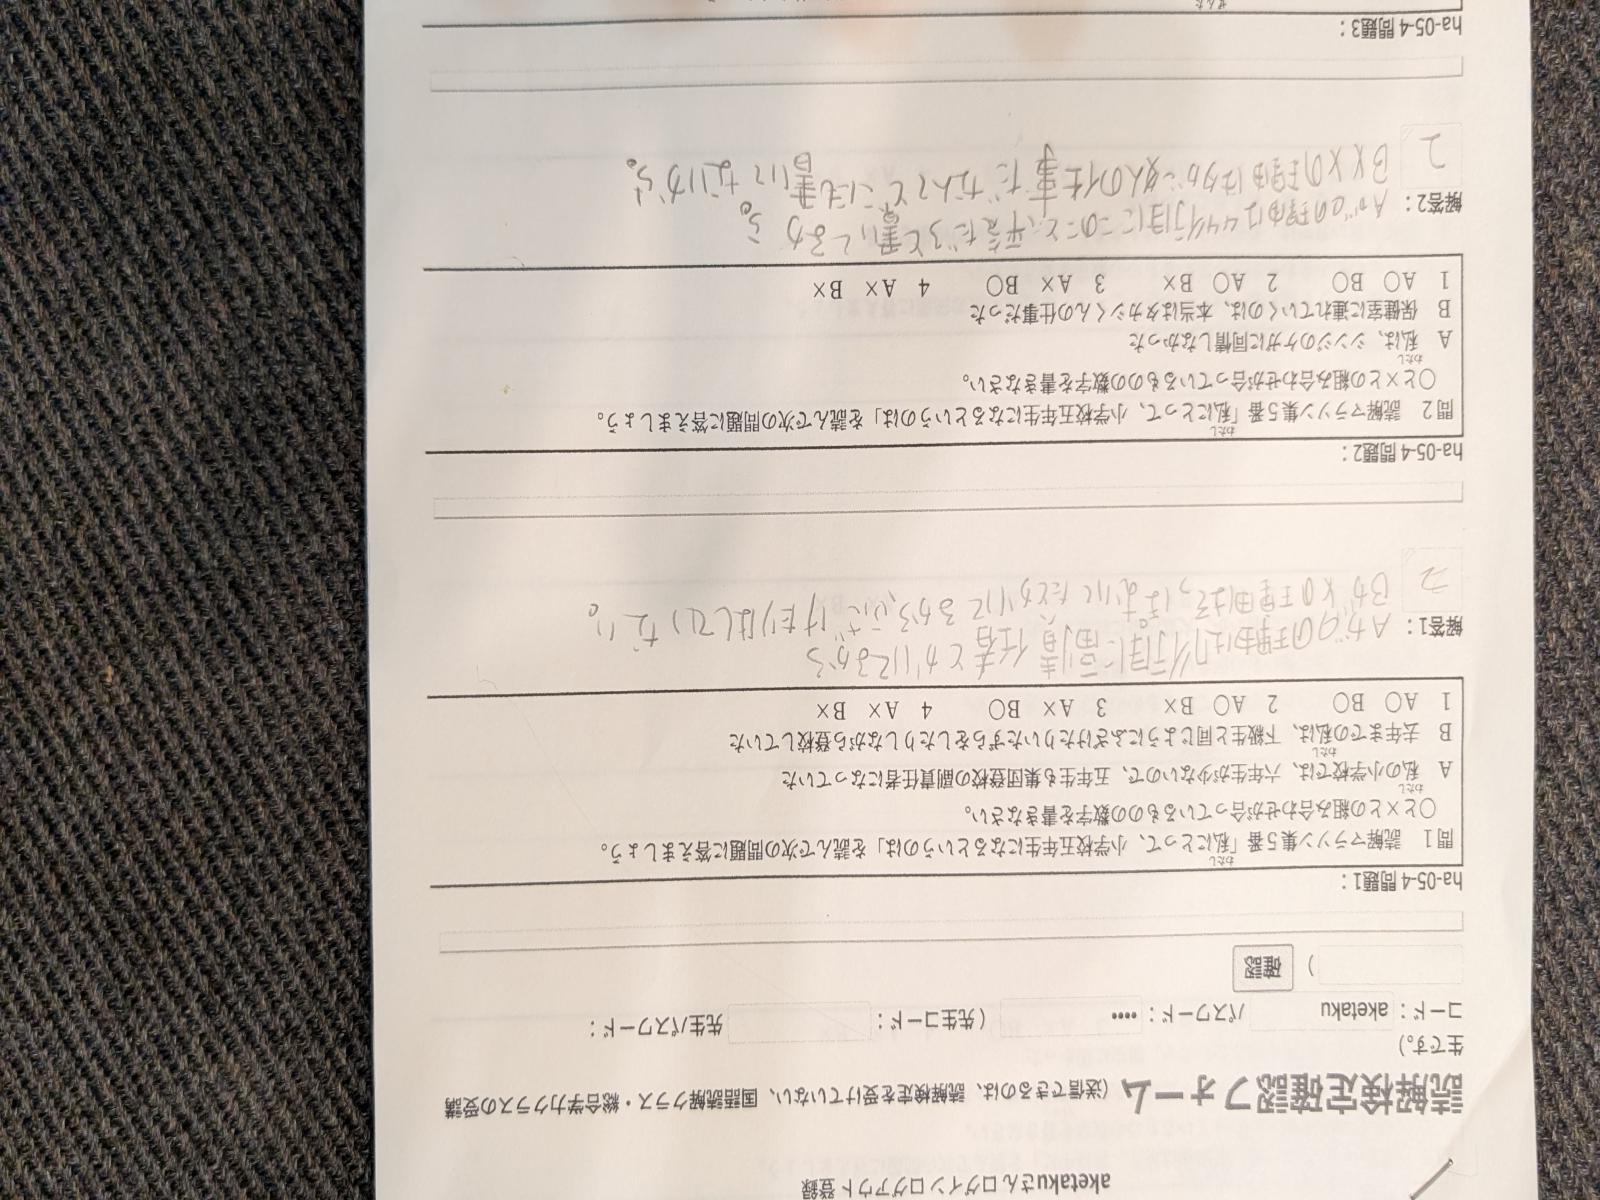 aketakuさんログインログアウト登録
読解検定確認フォーム (送信できるのは、読解検定を受けていない、国語読解クラス・総合学力クラスの受講
生です。)
コード: aketaku パスワード: •••• (先生コード: 先生パスワード:
) 確認
ha-05-4 問題1:
問1 読解マラソン集5番「私にとって、小学校五年生になるというのは」を読んで次の問題に答えましょう。
わたし
○と×との組み合わせが合っているものの数字を書きなさい。
A 私の小学校では、六年生が少ないので、五年生も集団登校の副責任者になっていた
わたし
B 去年までの私は、下級生と同じようにふざけたりいたずらをしたりしながら登校していた
わたし
1 A○ B○ 2 A○ B× 3 A× B○ 4 A× B×
解答1: Aが○の理由は 行目に副責任者とかいてるから
Bが×の理由は にたとかいてるから、ふざけたりはしていない。
2
ha-05-4 問題2:
問2 読解マラソン集5番「私にとって、小学校五年生になるというのは」を読んで次の問題に答えましょう。
わたし
○と×との組み合わせが合っているものの数字を書きなさい。
A 私は、シンジのケガに同情しなかった
わたし
B 保健室に連れていくのは、本当はタカシくんの仕事だった
1 A○ B○ 2 A○ B× 3 A× B○ 4 A× B×
解答2: Aが○の理由は44行目に と書いてるから。
B×の理由は の仕事だなんてどこにも書いてないから。
2
ha-05-4 問題3: